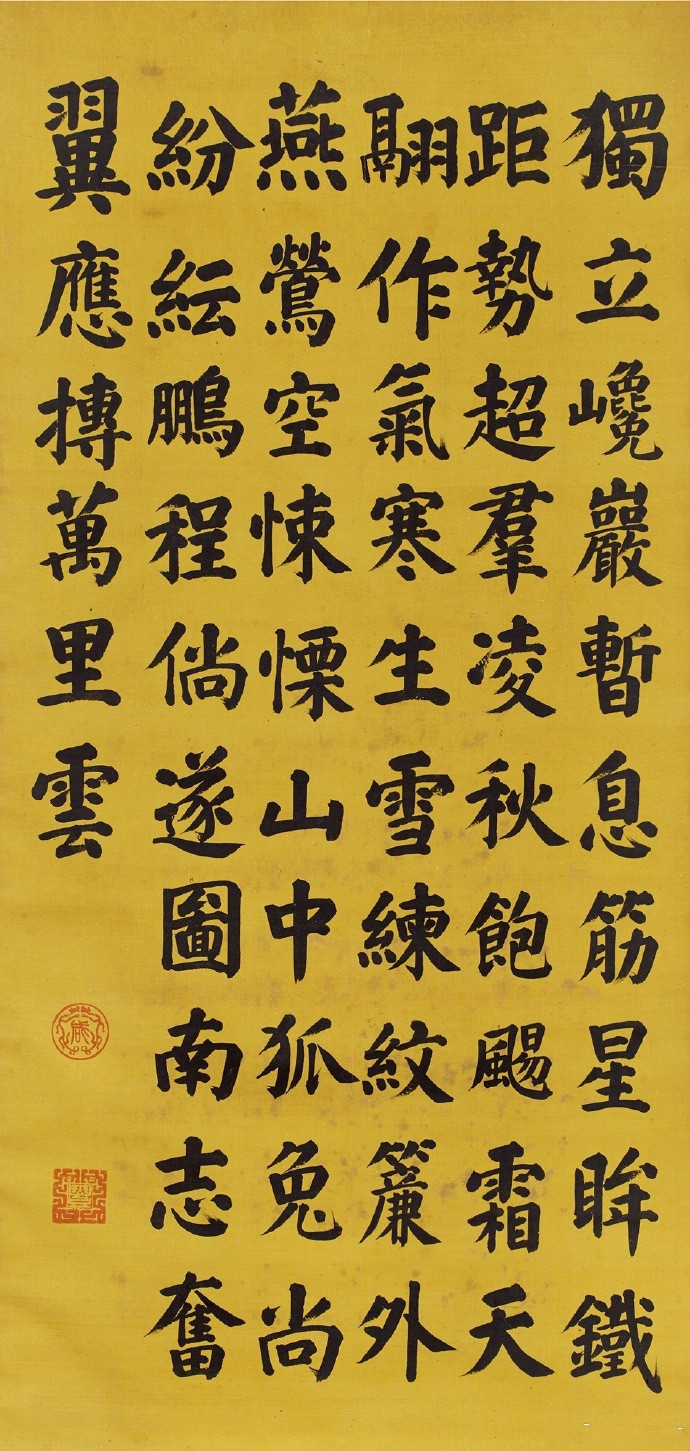 獨立巉巖暫息筋星眸鐵
距勢超羣凌秋飽颺霜天
翮作氣寒生雪練紋簾外
燕鶯空悚慄山中狐兔尚
紛紜鵬程倘遂圖南志奮
翼應摶萬里雲